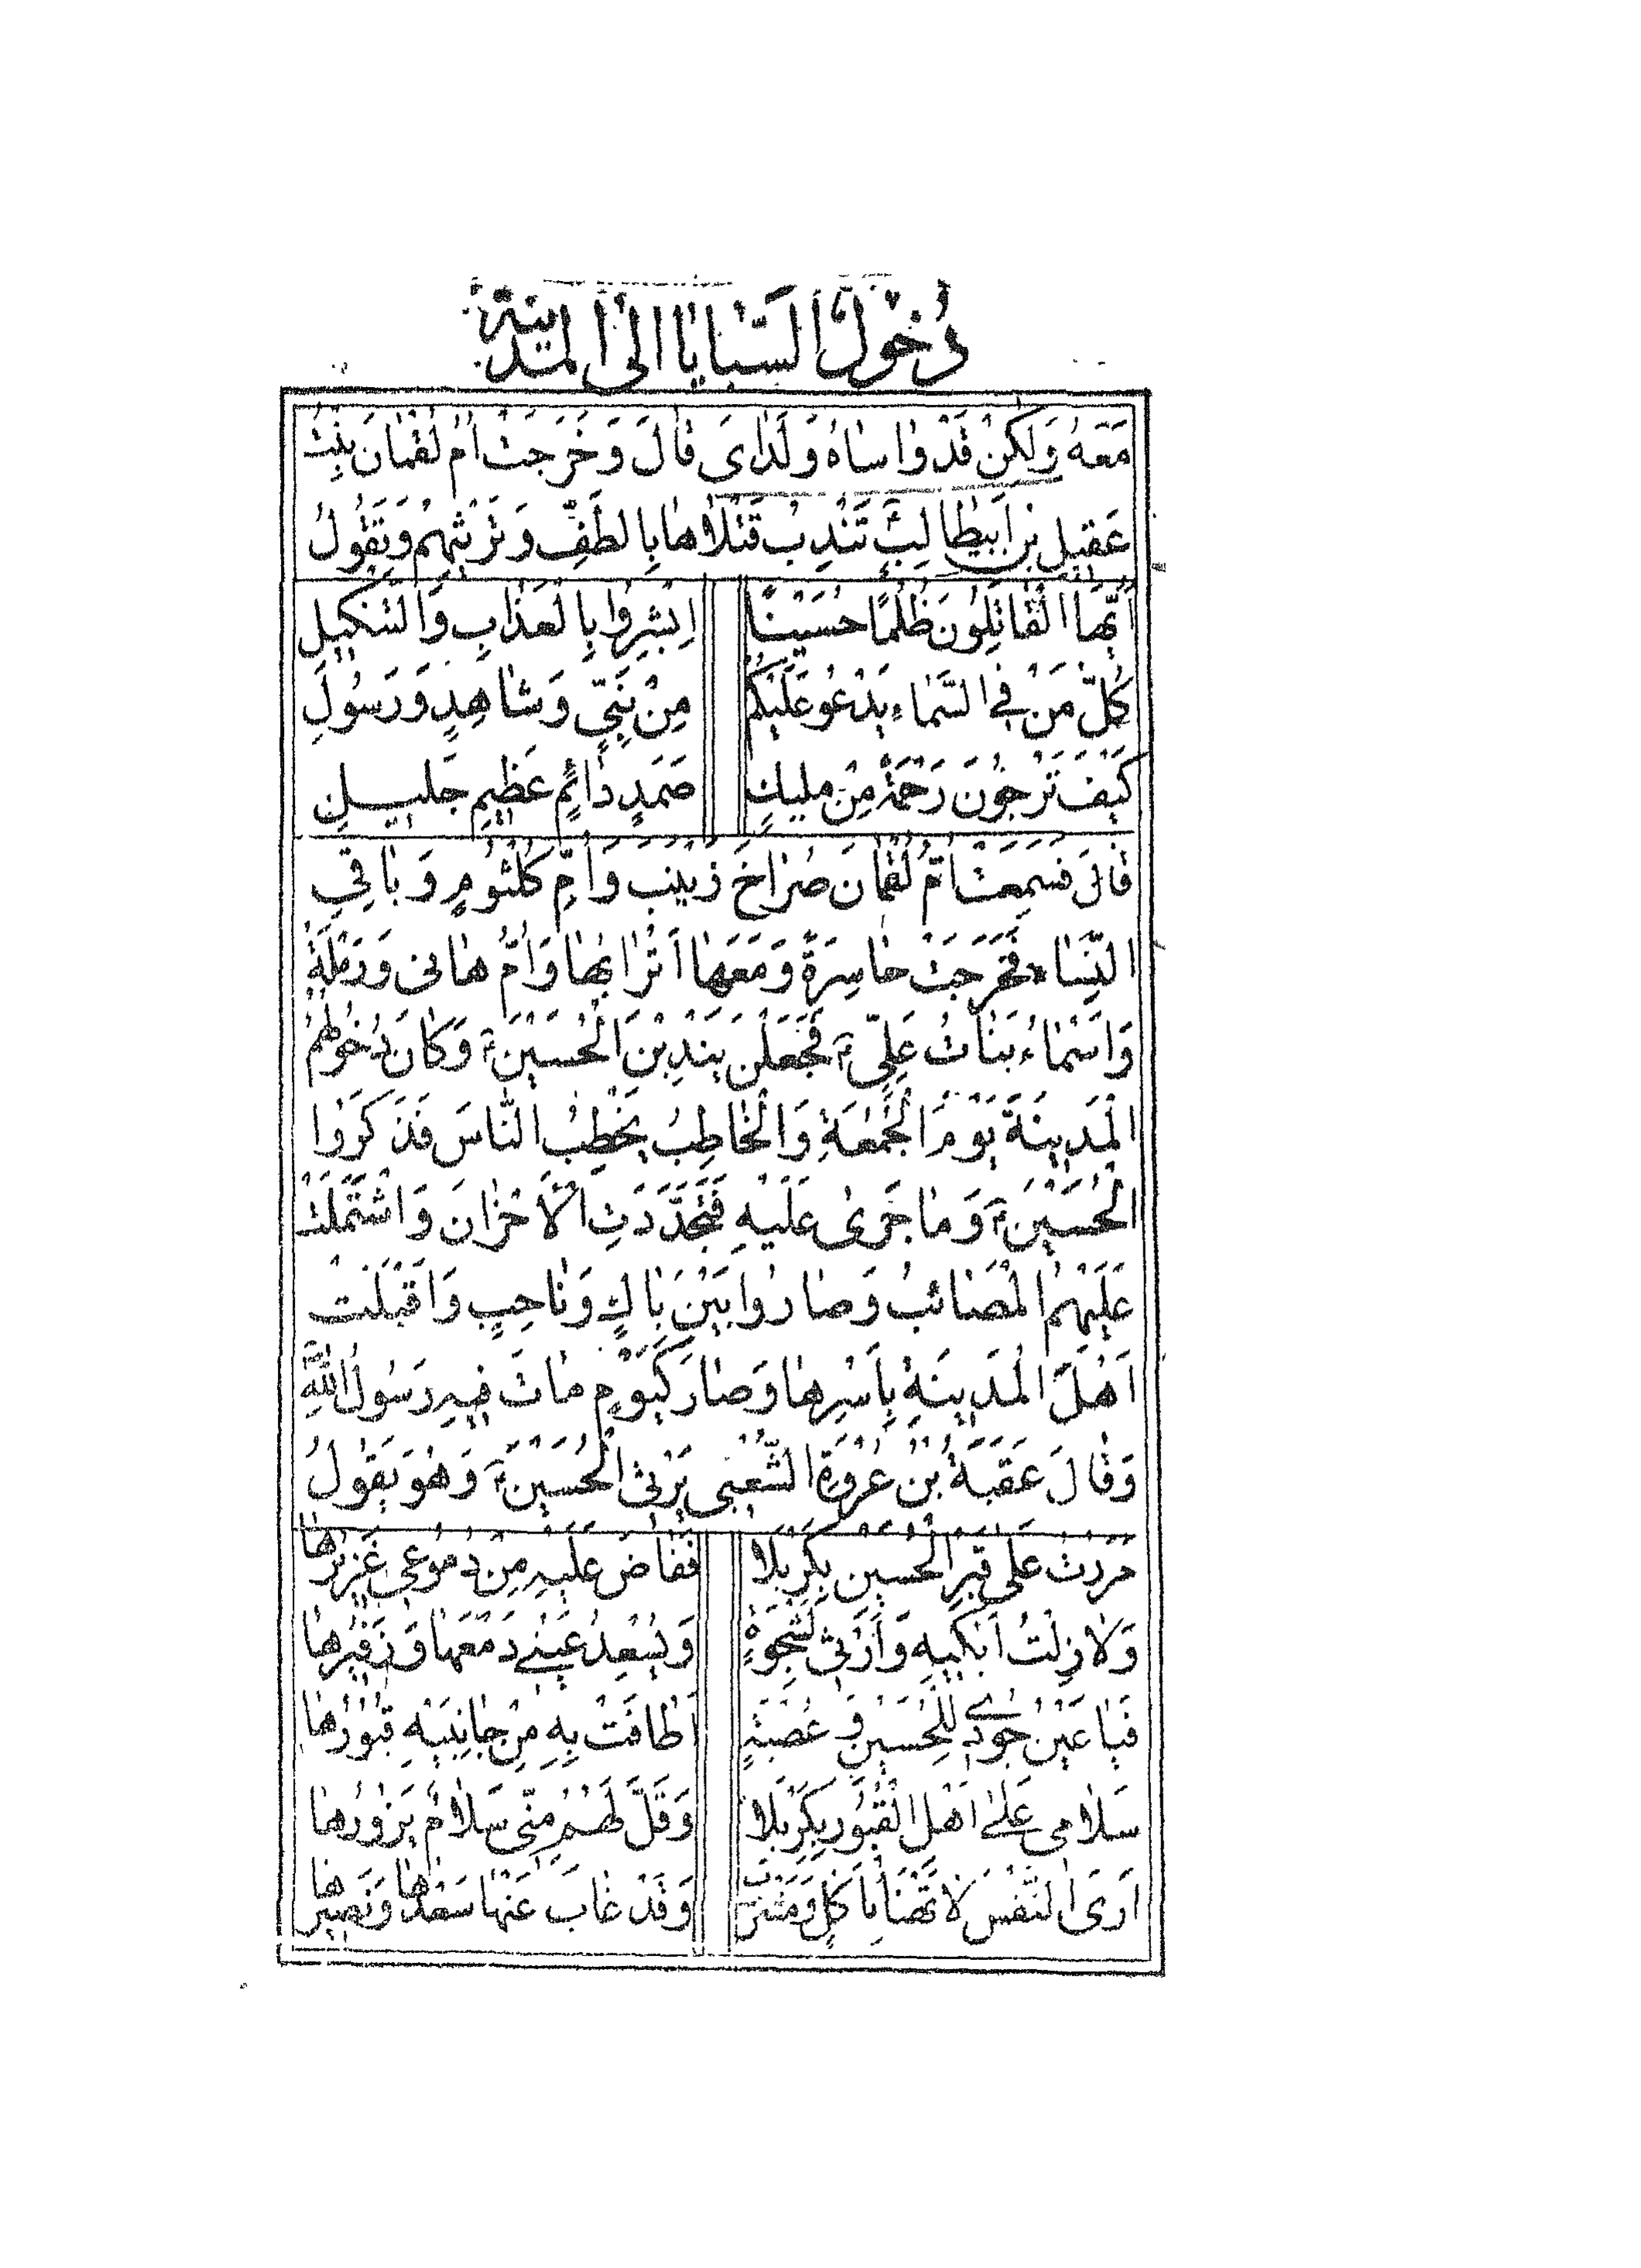 دُخُولُ السَّبَايَا اِلَى الْمَدِينَةِ
مَعَهُ وَلٰكِنْ قَدْ وٰاسٰاهُ وَلَدٰاىَ قٰالَ وَخَرَجَتْ اُمُّ لُقْمٰانَ بِنْتُ
عَقِيلِ بْنِ اَبِيطٰالِبٍ تَنْدِبُ قَتْلاٰهٰا بِالطَّفِّ وَتَرْثِيهِمْ وَتَقُولُ
اَيُّهَا الْقٰاتِلُونَ ظُلْمًا حُسَيْنًا اِبْشِرُوا بِالْعَذٰابِ وَالتَّنْكِيلِ
كُلُّ مَنْ فِي السَّمٰاءِ يَدْعُو عَلَيْكُمْ مِنْ نَبِيٍّ وَشٰاهِدٍ وَرَسُولِ
كَيْفَ تَرْجُونَ رَحْمَةً مِنْ مَلِيكٍ صَمَدٍ دٰائِمٍ عَظِيمٍ جَلِيلٍ
قٰالَ فَسَمِعَتْ اُمُّ لُقْمٰانَ صُرٰاخَ زَيْنَبَ وَاُمِّ كُلْثُومٍ وَبٰاقِي
النِّسٰاءِ فَخَرَجَتْ حٰاسِرَةً وَمَعَهٰا اَتْرٰابُهٰا وَاُمُّ هٰانِى وَرَمْلَةُ
وَاَسْمٰاءُ بَنٰاتُ عَلِيٍّ ؑ فَجَعَلْنَ يَنْدِبْنَ الْحُسَيْنَ ؑ وَكٰانَ دُخُولُهُمْ
الْمَدِينَةَ يَوْمَ الْجُمُعَةِ وَالْخٰاطِبُ يَخْطِبُ النّٰاسَ فَذَكَرُوا
الْحُسَيْنَ ؑ وَمٰا جَرٰى عَلَيْهِ فَتَجَدَّدَتِ الْاَحْزٰانَ وَاشْتَمَلَتْ
عَلَيْهِمُ الْمَصٰائِبُ وَصٰارُوا بَيْنَ بٰاكٍ وَنٰاحِبٍ وَاَقْبَلَتْ
اَهْلُ الْمَدِينَةِ بِاَسْرِهٰا وَصٰارَ كَيَوْمٍ مٰاتَ فِيهِ رَسُولُ اللّٰهِ
وَقٰالَ عَقَبَةُ بْنُ عُرْوَةِ الشَّعْبِى يَرْثِى الْحُسَيْنَ ؑ وَهُوَ يَقُولُ
مَرَرْتُ عَلٰى قَبْرِ الْحُسَيْنِ بِكَرْبَلَا فَفٰاضَ عَلَيْهِ مِنْ دُمُوعِى غَزِيرُهٰا
وَلاٰ زِلْتُ اَبْكِيهِ وَاَرْثِى لِشَجْوِهِ وَيُسْعِدُ عَيْنِى دَمْعَهٰا وَزَفِيرُهٰا
فَيٰا عَيْنُ جُودِى لِلْحُسَيْنِ وَ عُصْبَةٍ اَطٰافَتْ بِهِ مِنْ جٰانِبَيْهِ قُبُورُهٰا
سَلاٰمِى عَلٰى اَهْلِ الْقُبُورِ بِكَرْبَلَا وَقَلَّ لَهُمْ مِنِّى سَلاٰمٌ يَزُورُهٰا
اَرَى النَّفْسَ لاٰ تَهْنٰا بِاَكْلٍ وَمَشْرَبٍ وَقَدْ غٰابَ عَنْهٰا سَعْدُهٰا وَنَصِيرُهٰا